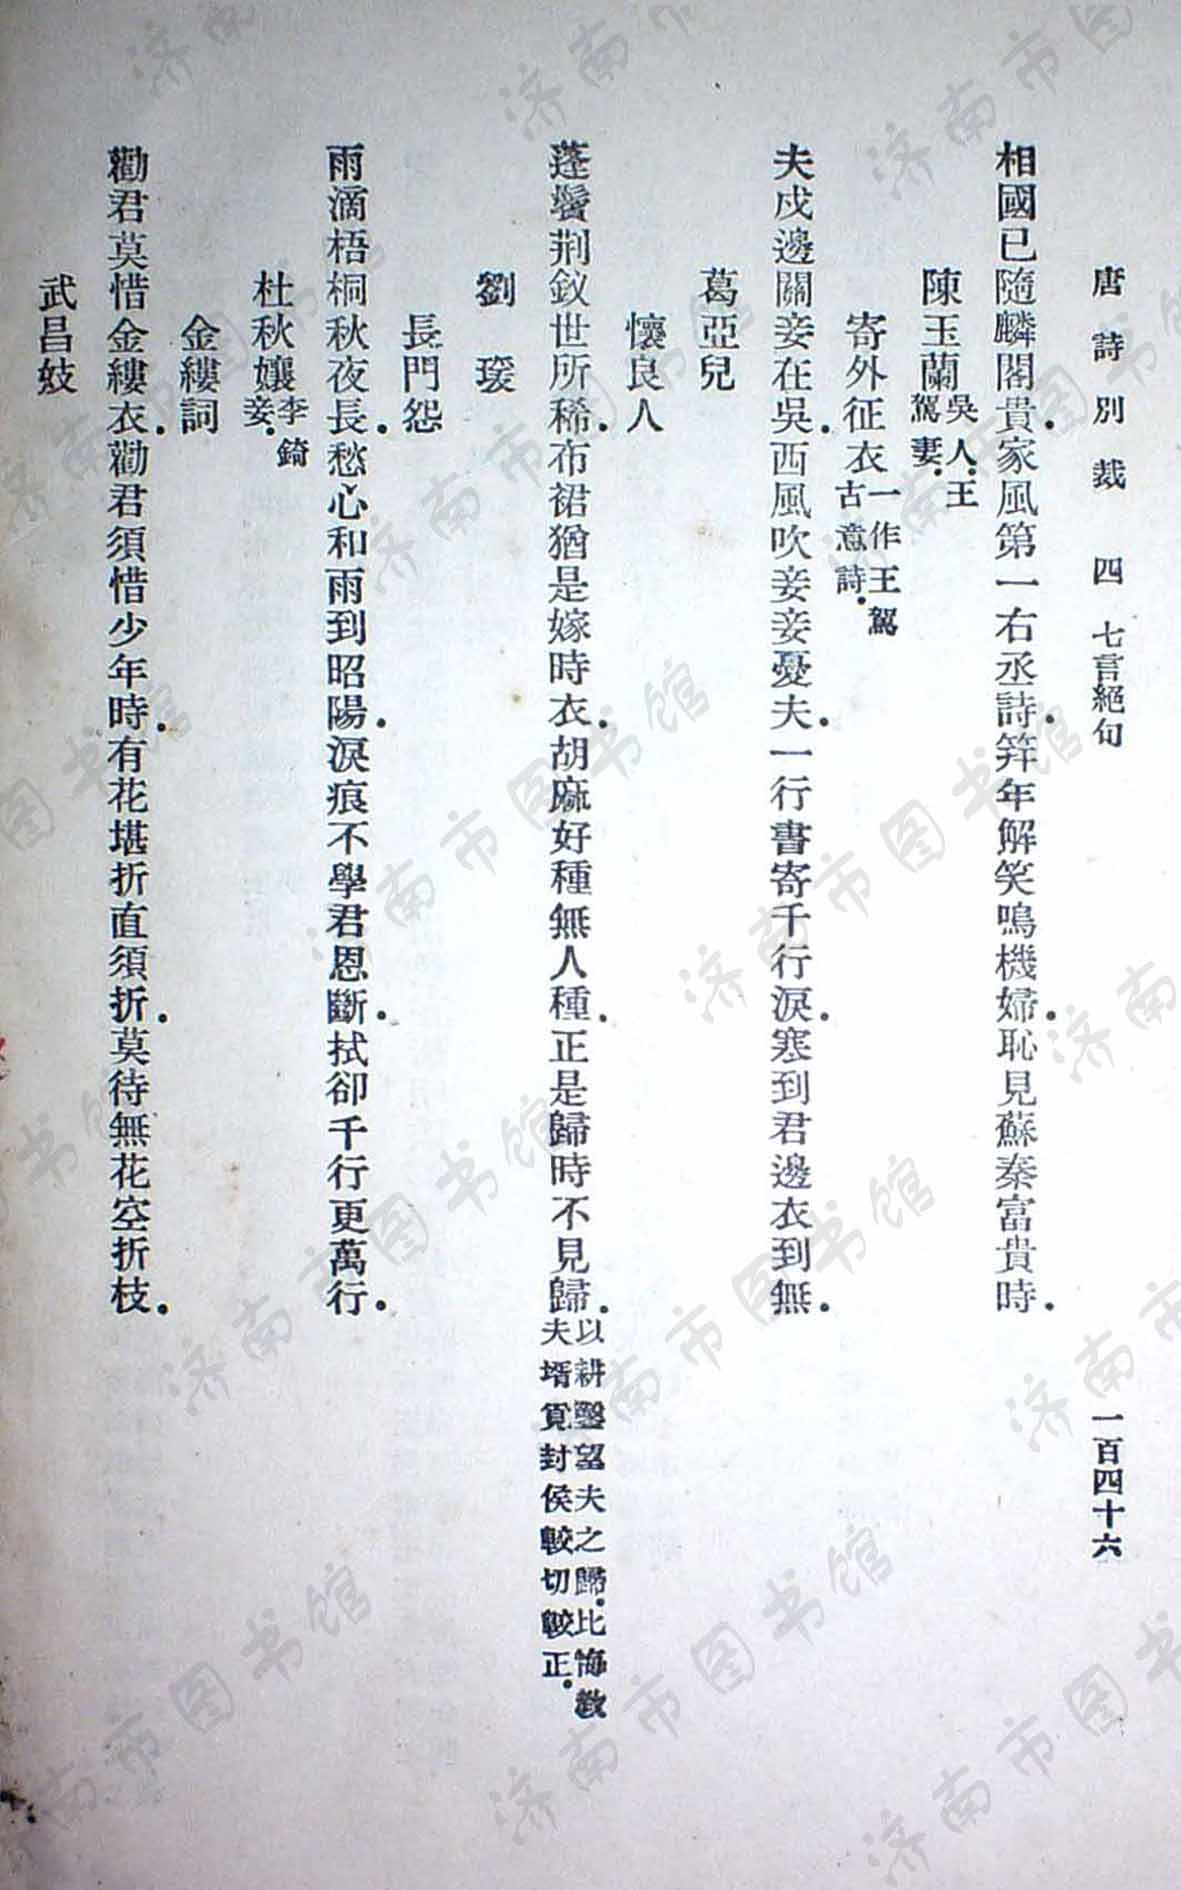 唐詩別裁 四 七言絕句 一百四十六
相國已隨麟閣貴.家風第一右丞詩.笄年解笑鳴機婦.恥見蘇秦富貴時.
陳玉蘭吳人.王駕妻.
寄外征衣一作王駕古意詩.
夫戍邊關妾在吳.西風吹妾妾憂夫.一行書寄千行淚.寒到君邊衣到無.
葛亞兒
懷良人
蓬鬢荆釵世所稀.布裙猶是嫁時衣.胡麻好種無人種.正是歸時不見歸.以耕鑿望夫之歸.比悔教夫壻覓封侯較切較正.
劉瑗
長門怨
雨滴梧桐秋夜長.愁心和雨到昭陽.淚痕不學君恩斷.拭卻千行更萬行.
杜秋孃李錡妾.
金縷詞
勸君莫惜金縷衣.勸君須惜少年時.有花堪折直須折.莫待無花空折枝.
武昌妓
济南市图书馆